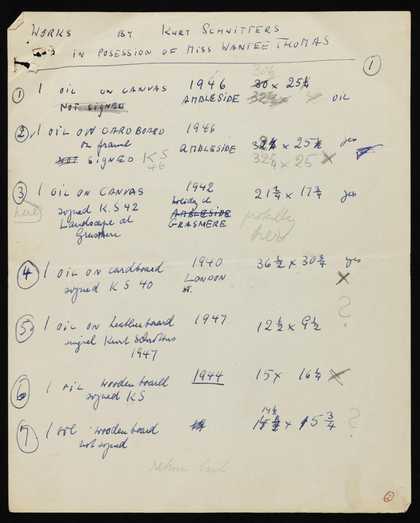 WORKS BY KURT SCHWITTERS
IN POSESSION OF MISS WANTEE THOMAS
①
① 1 OIL ON CANVAS 1946 30 x 25¼
NOT SIGNED AMBLESIDE OIL
② 1 OIL ON CARDBOARD 1946
on panel AMBLESIDE 25¼ yes
NOT SIGNED KS 46 32¼ x 25 x
③ 1 OIL ON CANVAS 1942 21¼ x 17¾ yes
here signed K.S 42 holiday at
Landscape at AMBLESIDE
Grasmere GRASMERE
here
④ 1 OIL on cardboard 1940 36½ x 30¾ yes
signed KS 40 LONDON x
⑤ 1 OIL ON leatherboard 1947 12½ x 9½ ?
signed Kurt Schwitters
1947
⑥ 1 OIL wooden board 1944 15 x 16¼ x
signed KS
⑦ 1 OIL wooden board 14½ x 15¾ ?
not signed